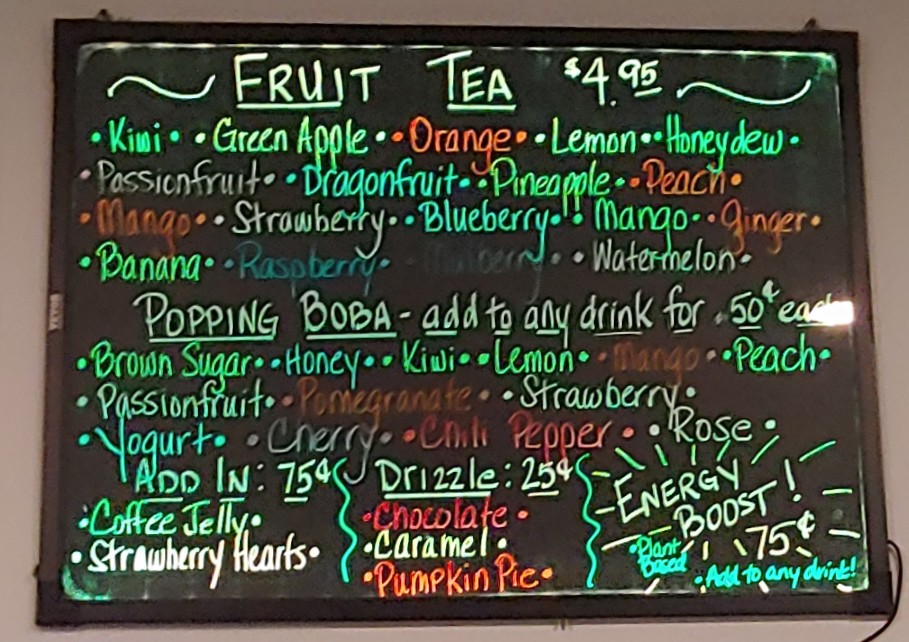 FRUIT TEA $4.95
• Kiwi • • Green Apple • • Orange • • Lemon • • Honeydew •
• Passionfruit • • Dragonfruit • • Pineapple • • Peach •
• Mango • • Strawberry • • Blueberry • • Mango • • Ginger •
• Banana • • Raspberry • • Mulberry • • Watermelon •
POPPING BOBA - add to any drink for .50¢ each
• Brown Sugar • • Honey • • Kiwi • • Lemon • • Mango • • Peach •
• Passionfruit • • Pomegranate • • Strawberry •
• Yogurt • • Cherry • • Chili Pepper • • Rose •
ADD IN: 75¢
• Coffee Jelly •
• Strawberry Hearts •
Drizzle: 25¢
• Chocolate •
• Caramel •
• Pumpkin Pie •
ENERGY
BOOST!
75¢
• Plant
Based
• Add to any drink!